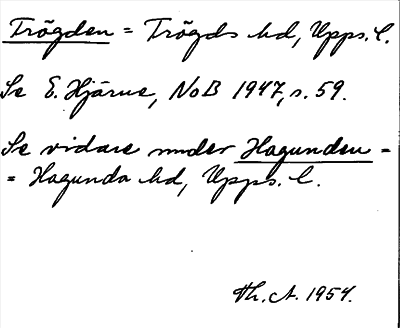 Trögden = Trögds hd, Upps. l.
Se E. Hjärne, NoB 1947, s. 59.
Se vidare under Hagunden =
= Hagunda hd, Upps. l.
Th. A. 1954.